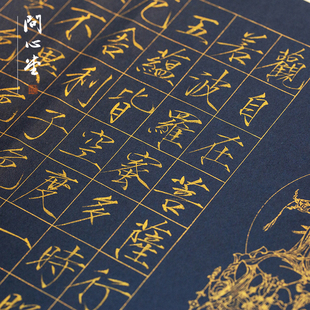 問心堂
觀自在菩薩行
若波羅蜜多時照
五蘊皆空度一
厄舍利子色
不異色